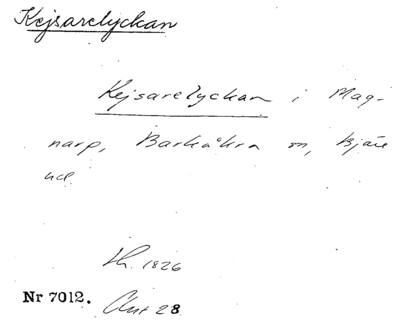 Kejsarelyckan
Kejsarelyckan i Mag-
narp, Barkåkra sn, Bjäre
hd.
Lh. 1826
Nr 7012. Akt 28